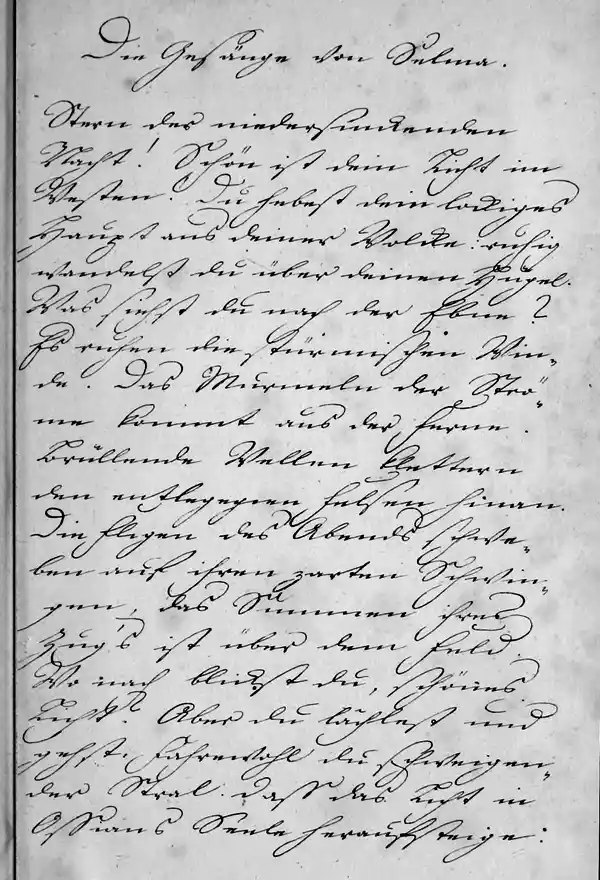 Die Gesänge von Selma.
Stern der niedersinkenden
Nacht! Schön ist dein Licht im
Westen! Du hebest dein lockiges
Haupt aus deiner Wolcke: ruhig
wandelst du über deinen Hügel.
Was siehst du nach der Ebne?
Es ruhen die stürmischen Win-
de. Das Murmeln der Strö-
me kommt aus der Ferne.
Brüllende Wellen klettern
den entlegenen Felsen hinan.
Die Fligen des Abends schwe-
ben auf ihren zarten Schwin-
gen, das Summen ihres
Zug's ist über dem Feld.
Wo nach blickst du, schönes
Licht? Aber du lächlest und
gehst. Fahrewohl du schweigen-
der Stral. dass das Licht in
Ossians Seele heraufsteige: